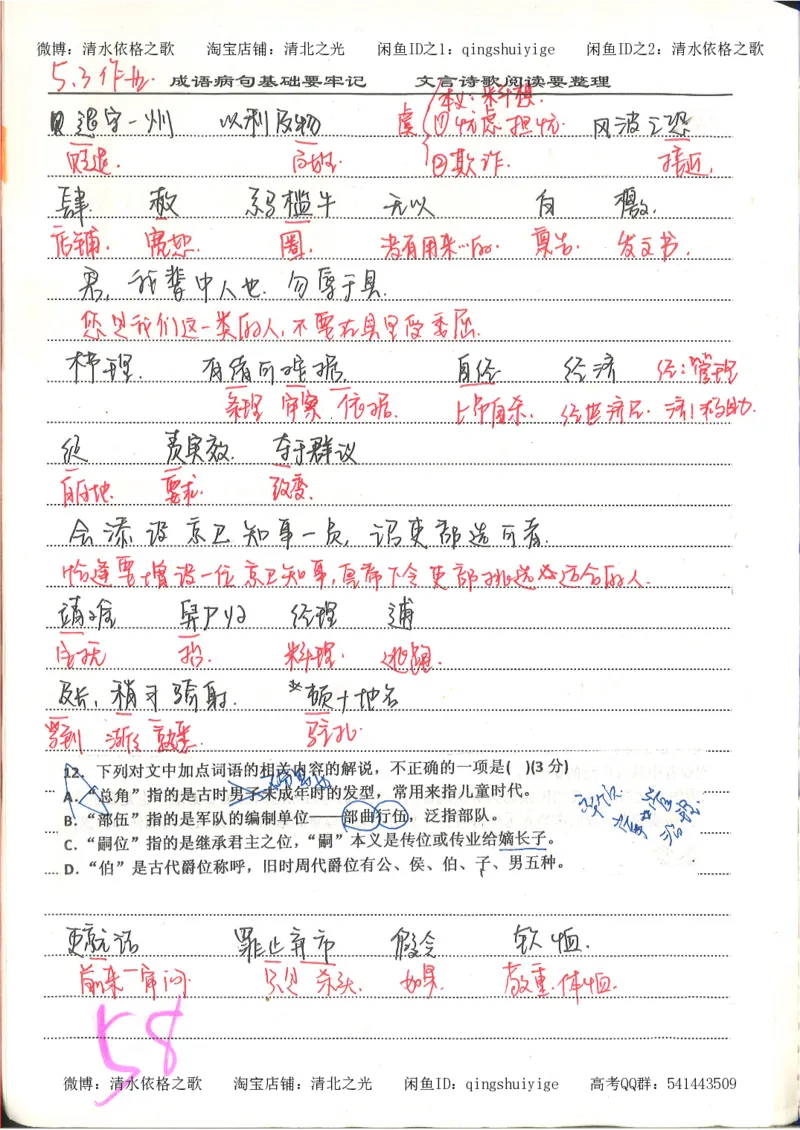 微博：清水依格之歌 淘宝店铺：清北之光 闲鱼ID之1：qingshuiyige 闲鱼ID之2：清水依格之歌
5.3作业 成语病句基础要牢记 文言诗歌阅读要整理
本义：料想
追守一州 以利及物 虞 ①忧虑担忧 风波之恐
贬追. 高姓. ②欺诈. 接近.
肆. 赦 槛牛 无以 白 檄.
店铺. 宽恕. 圈. 没有用来…的. 禀告. 发文书.
君，我辈中人也. 勿辱于县.
您是我们这一类的人，不要在县里受委屈.
梳理. 有绪可难据. 自经 经济 经：管理
条理 审察 依据. 上吊自杀. 经世济民. 济：帮助.
从 责实效. 夺于群议
自西地. 要求. 改变.
会添设京卫知事一员，诏吏部选可者.
恰逢要增设一位京卫知事，皇帝下令吏部挑选合适的人.
靖难 经理 逋
料理. 逃跑.
及长，稍习骑射. *顿+地名
等到 渐渐 熟悉. 驻扎
12．下列对文中加点词语的相关内容的解说，不正确的一项是( )(3 分)
A．“总角”指的是古时男子未成年时的发型，常用来指儿童时代。
B．“部伍”指的是军队的编制单位——部曲行伍，泛指部队。
C．“嗣位”指的是继承君主之位，“嗣”本义是传位或传业给嫡长子。
D．“伯”是古代爵位称呼，旧时周代爵位有公、侯、伯、子、男五种。
更就讯 罪止弃市 假令 钦恤.
前来 审问 只是 杀头. 如果. 敬重.体恤.
58
微博：清水依格之歌 淘宝店铺：清北之光 闲鱼ID：qingshuiyige 高考QQ群：541443509